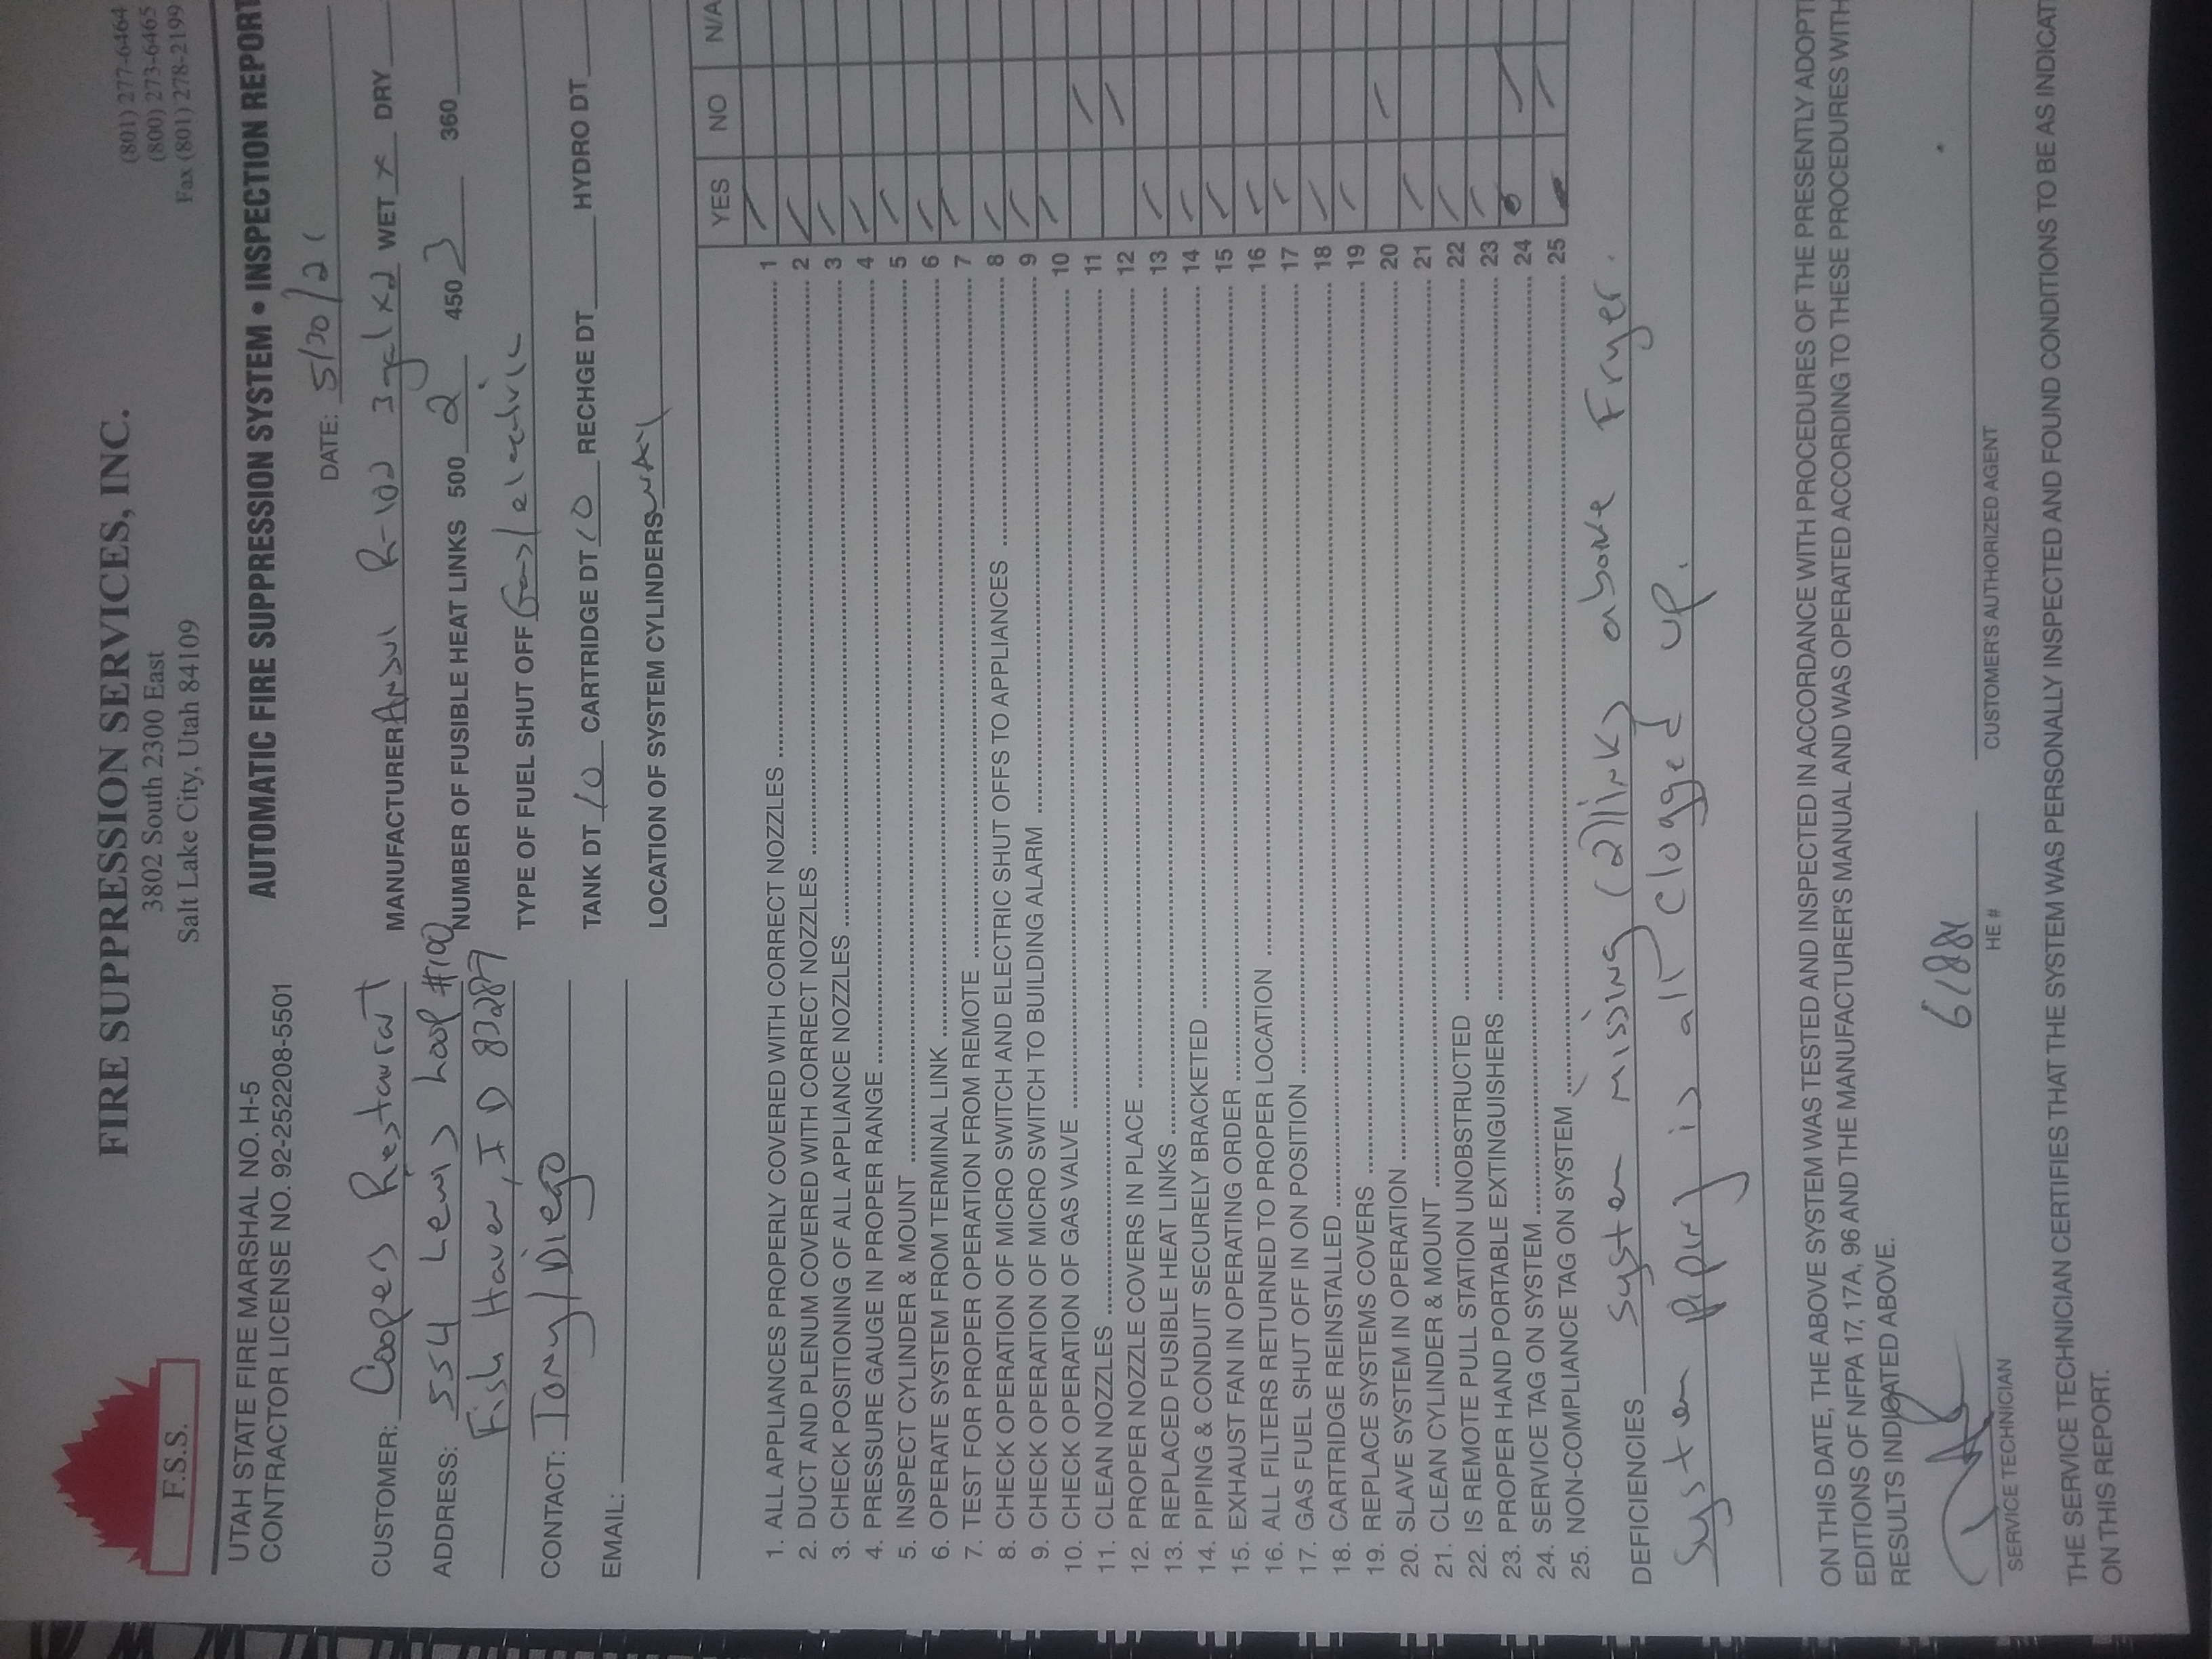 F.S.S.
FIRE SUPPRESSION SERVICES, INC.
3802 South 2300 East
Salt Lake City, Utah 84109
(801) 277-6464
(800) 273-6465
Fax (801) 278-2199
UTAH STATE FIRE MARSHAL NO. H-5
CONTRACTOR LICENSE NO. 92-252208-5501
AUTOMATIC FIRE SUPPRESSION SYSTEM • INSPECTION REPORT
DATE: 5/20/21
CUSTOMER: Coopers Restaurant
ADDRESS: 554 Lewis Loop #100
Fish Haven, ID 83287
CONTACT: Tony/Diego
EMAIL:
MANUFACTURER Ansul R-102 3 gal x2 WET x DRY
NUMBER OF FUSIBLE HEAT LINKS 500 2 450 3 360
TYPE OF FUEL SHUT OFF Gas/electric
TANK DT 10 CARTRIDGE DT 10 RECHGE DT HYDRO DT
LOCATION OF SYSTEM CYLINDERS WALL
YES NO N/A
1. ALL APPLIANCES PROPERLY COVERED WITH CORRECT NOZZLES 1 ✓
2. DUCT AND PLENUM COVERED WITH CORRECT NOZZLES 2 ✓
3. CHECK POSITIONING OF ALL APPLIANCE NOZZLES 3 ✓
4. PRESSURE GAUGE IN PROPER RANGE 4 ✓
5. INSPECT CYLINDER & MOUNT 5 ✓
6. OPERATE SYSTEM FROM TERMINAL LINK 6 ✓
7. TEST FOR PROPER OPERATION FROM REMOTE 7 ✓
8. CHECK OPERATION OF MICRO SWITCH AND ELECTRIC SHUT OFFS TO APPLIANCES 8 ✓
9. CHECK OPERATION OF MICRO SWITCH TO BUILDING ALARM 9 ✓
10. CHECK OPERATION OF GAS VALVE 10 ✓
11. CLEAN NOZZLES 11 ✓
12. PROPER NOZZLE COVERS IN PLACE 12 ✓
13. REPLACED FUSIBLE HEAT LINKS 13 ✓
14. PIPING & CONDUIT SECURELY BRACKETED 14 ✓
15. EXHAUST FAN IN OPERATING ORDER 15 ✓
16. ALL FILTERS RETURNED TO PROPER LOCATION 16 ✓
17. GAS FUEL SHUT OFF IN ON POSITION 17 ✓
18. CARTRIDGE REINSTALLED 18 ✓
19. REPLACE SYSTEMS COVERS 19 ✓
20. SLAVE SYSTEM IN OPERATION 20 ✓
21. CLEAN CYLINDER & MOUNT 21 ✓
22. IS REMOTE PULL STATION UNOBSTRUCTED 22 ✓
23. PROPER HAND PORTABLE EXTINGUISHERS 23 ✓
24. SERVICE TAG ON SYSTEM 24 ✓
25. NON-COMPLIANCE TAG ON SYSTEM 25 ✓
DEFICIENCIES System missing (2) links above Fryer.
System piping is all clogged up.
ON THIS DATE, THE ABOVE SYSTEM WAS TESTED AND INSPECTED IN ACCORDANCE WITH PROCEDURES OF THE PRESENTLY ADOPT
EDITIONS OF NFPA 17, 17A, 96 AND THE MANUFACTURER'S MANUAL AND WAS OPERATED ACCORDING TO THESE PROCEDURES WITH
RESULTS INDICATED ABOVE.
6188
SERVICE TECHNICIAN HE # CUSTOMER'S AUTHORIZED AGENT
THE SERVICE TECHNICIAN CERTIFIES THAT THE SYSTEM WAS PERSONALLY INSPECTED AND FOUND CONDITIONS TO BE AS INDICAT
ON THIS REPORT.